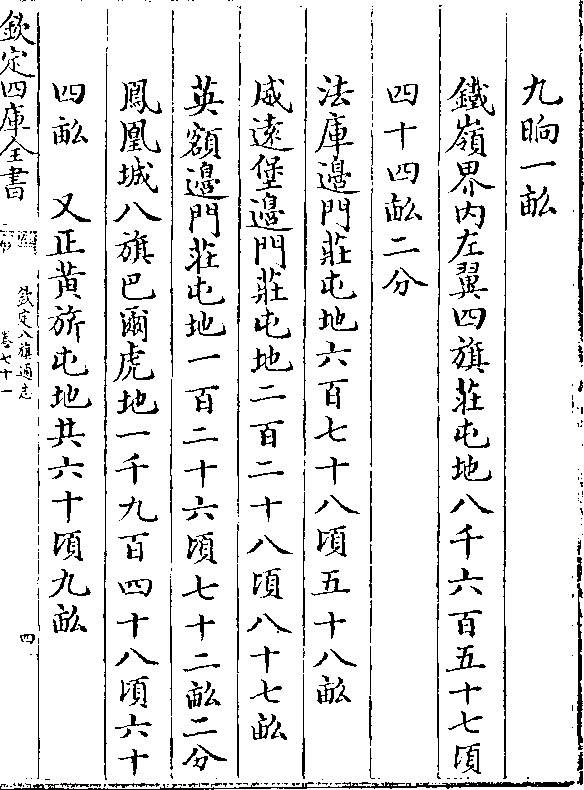 九晌一畝
鐵嶺界内左翼四旗莊屯地八千六百五十七頃
四十四畝二分
法庫邊門莊屯地六百七十八頃五十八畝
威遠堡邊門莊屯地二百二十八頃八十七畝
英額邊門莊屯地一百二十六頃七十二畝二分
鳳凰城八旗巴爾虎地一千九百四十八頃六十
四畝 又正黄旂屯地共六十頃九畝
欽定四庫全書
欽定八旗通志
卷七十一
四